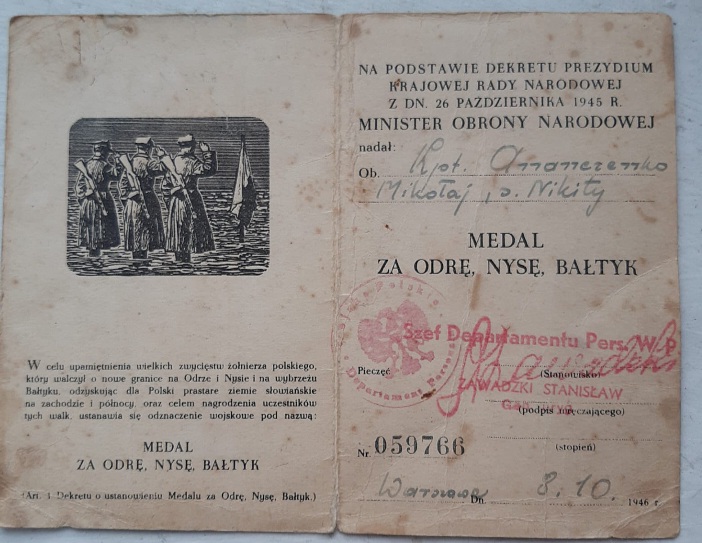 W celu upamiętnienia wielkich zwycięstw żołnierza polskiego,
który walczył o nowe granice na Odrze i Nysie i na wybrzeżu
Bałtyku, odzyskując dla Polski prastare ziemie słowiańskie
na zachodzie i północy, oraz celem nagrodzenia uczestników
tych walk, ustanawia się odznaczenie wojskowe pod nazwą:
MEDAL
ZA ODRĘ, NYSĘ, BAŁTYK
(Art. 1 Dekretu o ustanowieniu Medalu za Odrę, Nysę, Bałtyk.)
NA PODSTAWIE DEKRETU PREZYDIUM
KRAJOWEJ RADY NARODOWEJ
Z DN. 26 PAŹDZIERNIKA 1945 R.
MINISTER OBRONY NARODOWEJ
nadał:
Ob. Kpt. Ananczenko
Mikołaj, s. Nikity
MEDAL
ZA ODRĘ, NYSĘ, BAŁTYK
Wojsko Polskie
Departament Personalny
Szef Departamentu Pers. W.P.
Pieczęć
(Stanowisko)
ZAWADZKI STANISŁAW
(podpis ręczającego)
Nr. 059766
(stopień)
Warszawa Dn. 8.10. 1946 r.